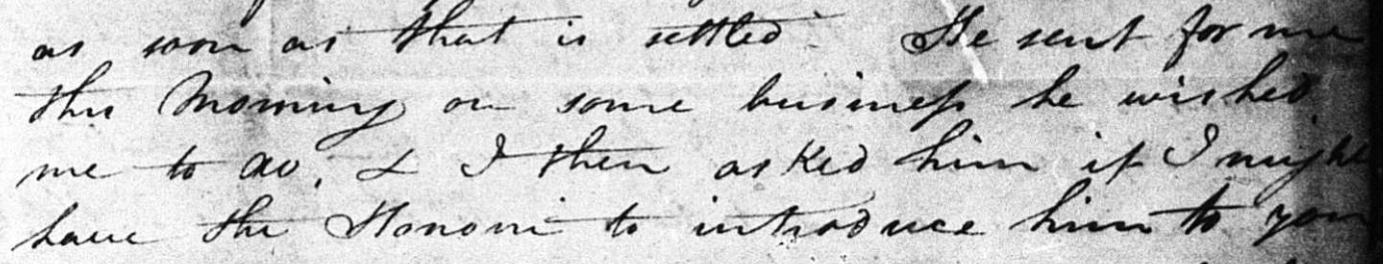 as soon as that is settled He sent for me
this Morning on some business he wished
me to do, & I then asked him if I might
have the Honour to introduce him to you